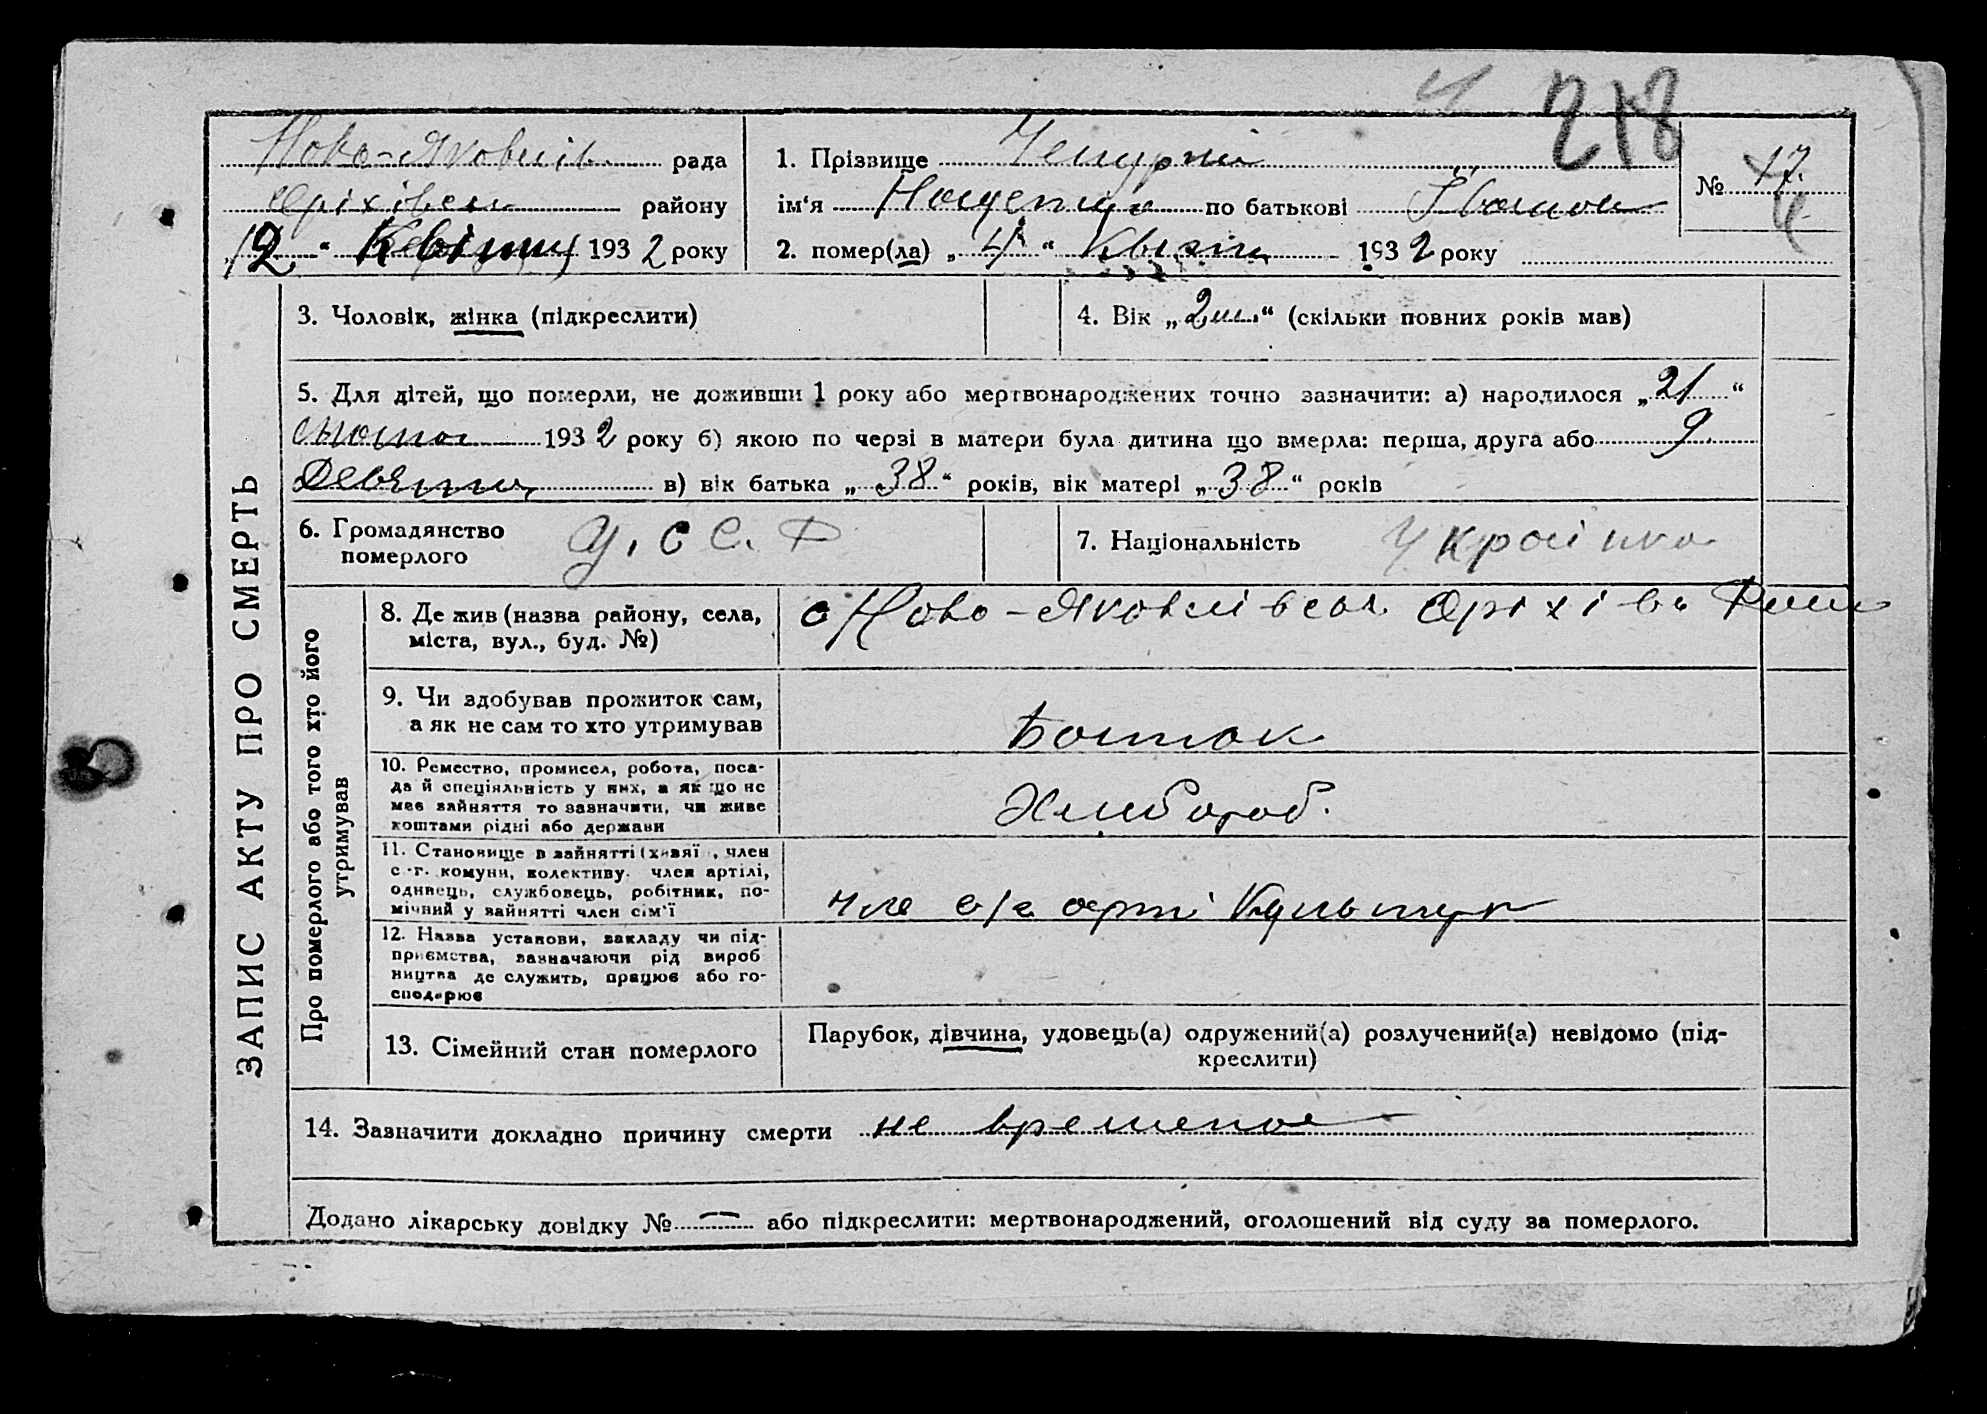 218
Ново-Яковлів. рада
Оріхівськ району
"12" Квітня 1932 року
1. Прізвище
№ 17.
ім‘я по батькові Іванов
2. помер(ла) „4“ Квітн 1932 року
3. Чоловік, жінка (підкреслити)
4. Вік „2 м.“ (скільки повних років мав)
5. Для дітей, що померли, не доживши 1 року або мертвонароджених точно зазначити: а) народилося „21“
1932 року б) якою по черзі в матери була дитина що вмерла: перша, друга або 9
Девята в) вік батька „38“ років, вік матері „38“ років
6. Громадянство
померлого
У. С С. Р
7. Національність Украінка
ЗАПИС АКТУ ПРО СМЕРТЬ
Про померлого або того хто його
утримував
8. Де жив (назва району, села,
міста, вул., буд. №)
с Ново-Яковлівськ. Оріхівс Рай
9. Чи здобував прожиток сам,
а як не сам то хто утримував
Батько
10. Ремество, промисел, робота, поса-
да й спеціяльність у них, а як що не
має зайняття то зазначити, чи живе
коштами рідні або держави
Хлибороб.
11. Становище в зайнятті (хазяї , член
с.-г. комуни, колективу. член артілі,
одинець, службовець, робітник, по-
мічний у зайнятті член сім‘ї
чле с/г арті Культур
12. Назва установи, закладу чи під-
приємства, зазначаючи рід вироб
ництва де служить, працює або го-
сподарює
13. Сімейний стан померлого
Парубок, дівчина, удовець(а) одружений(а) розлучений(а) невідомо (під-
креслити)
14. Зазначити докладно причину смерти не временая
Додано лікарську довідку № — або підкреслити: мертвонароджений, оголошений від суду за померлого.